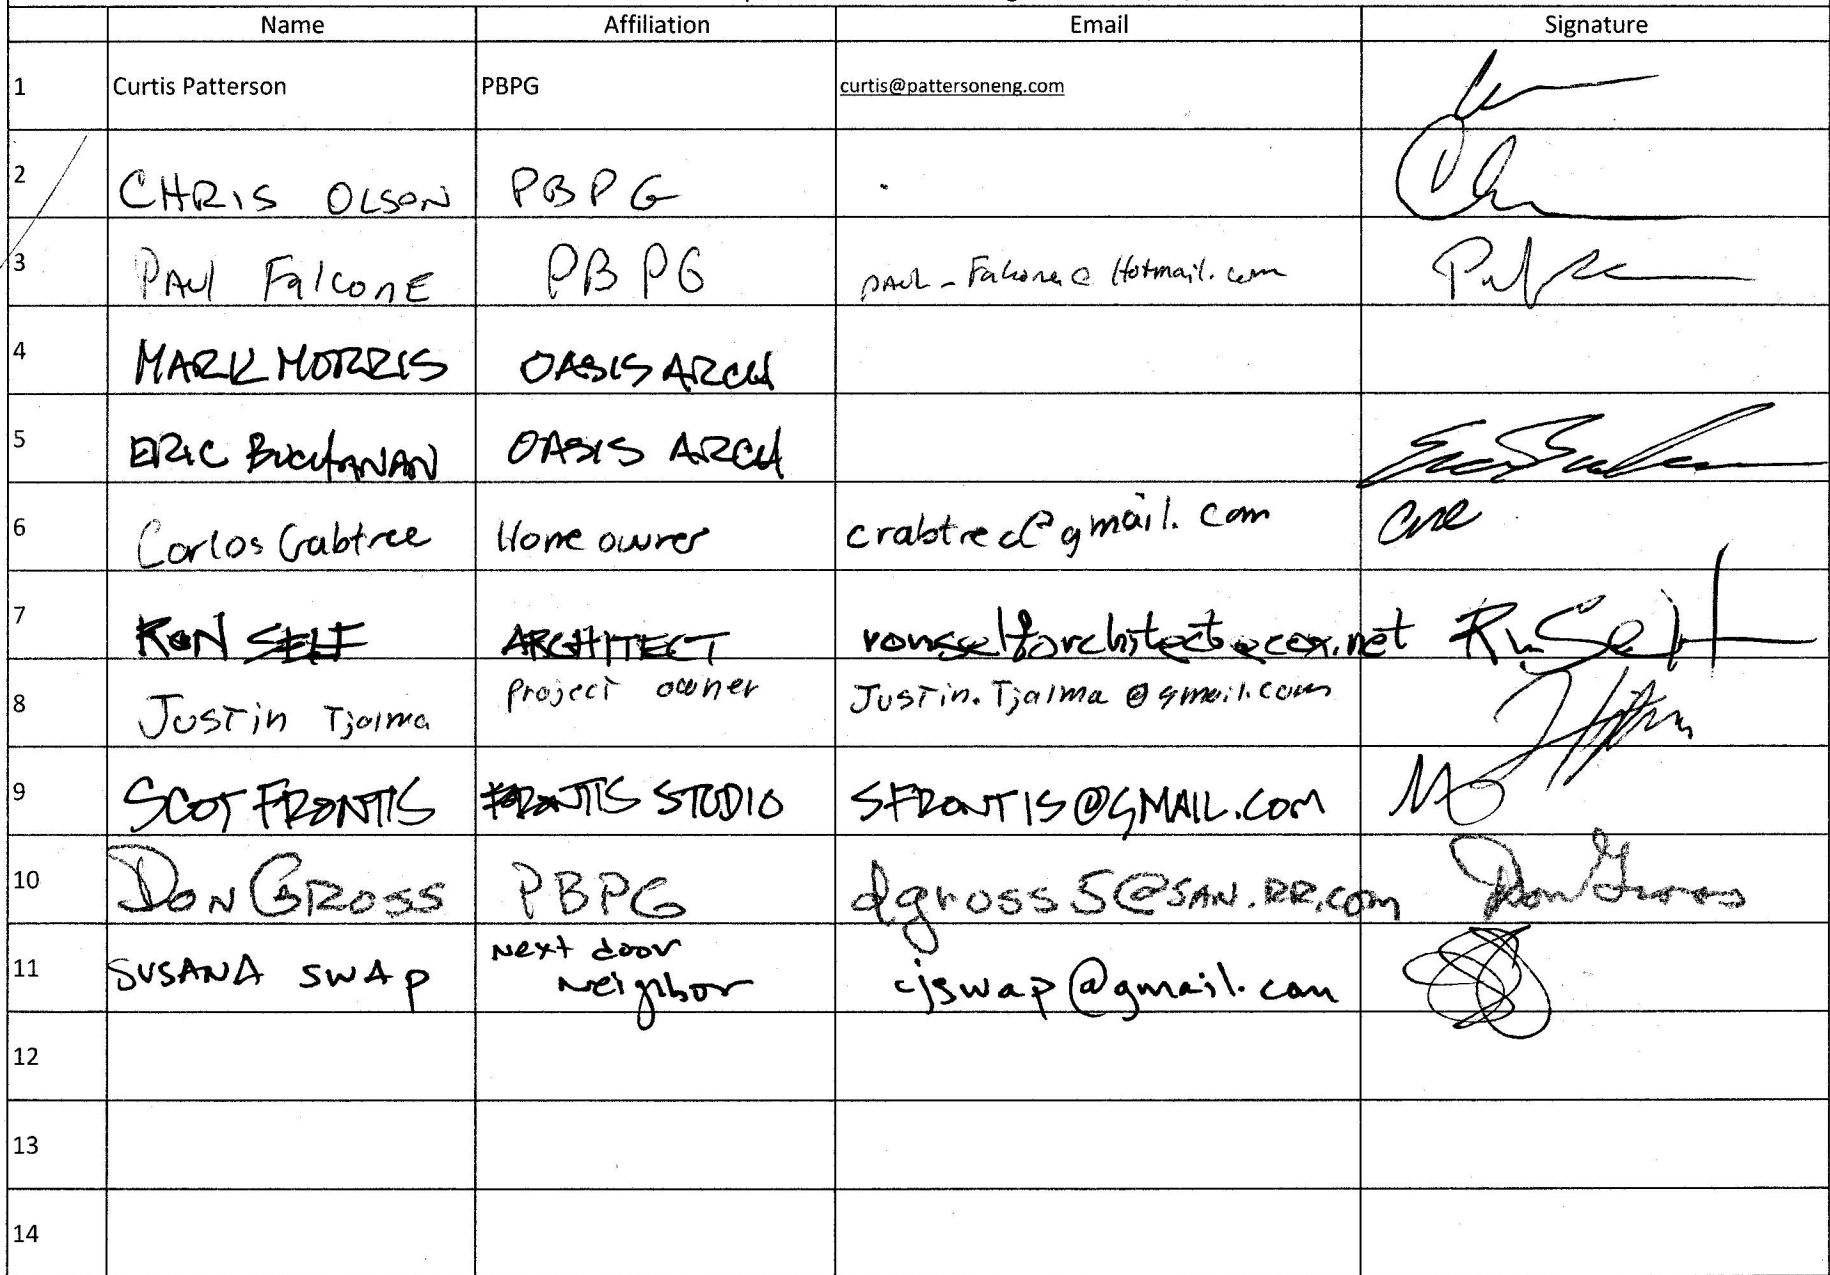 Name Affiliation Email Signature
1 Curtis Patterson PBPG curtis@pattersoneng.com
2 CHRIS OLSON PBPG
3 PAUl FalconE PBPG PAUL_Falcone@Hotmail.com
4 MARK MORRIS OASIS ARCH
5 ERIC BUCHANAN OASIS ARCH
6 Carlos Crabtree Home owner crabtrec@gmail.com
7 RON SELF ARCHITECT ronselfarchitect@cox.net
8 JUSTin Tjalma Project owner JUSTin.Tjalma@gmail.com
9 SCOT FRONTIS FRONTIS STUDIO SFRONTIS@GMAIL.COM
10 DON GROSS PBPG dgross5@SAN.RR.com Don Gross
11 SUSANA SWAP Next door
neighbor cjswap@gmail.com
12
13
14